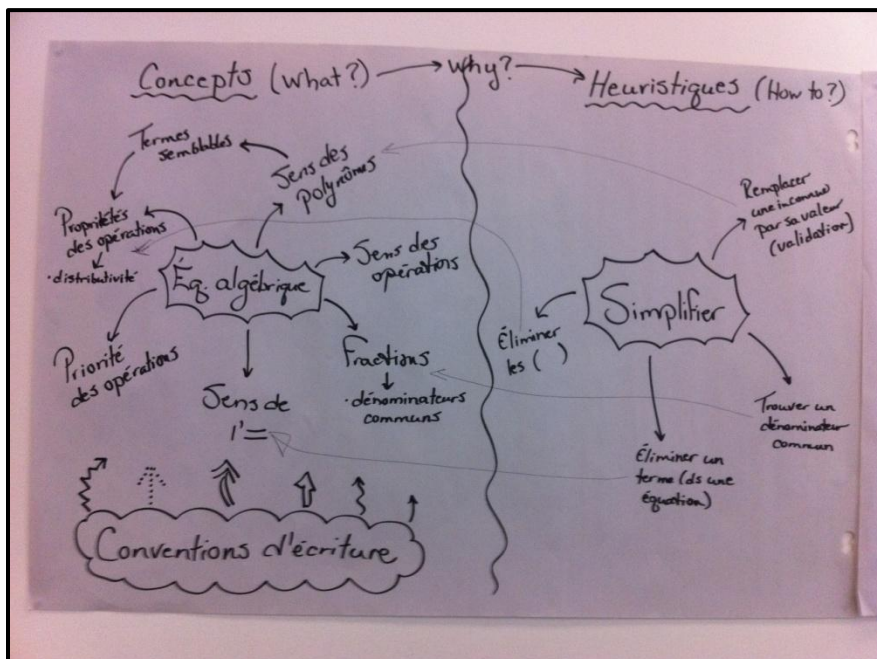 Concepts (What?)
why?
Heuristiques (How to?)
Termes
semblables
Sens des
polynômes
Propriétés
des opérations
• distributivité
Éq. algébrique
Sens des
opérations
Priorité
des opérations
Fractions
• dénominateurs
communs
Sens de
l'=
Conventions d'écriture
Remplacer
une inconnue
par sa valeur
(validation)
Simplifier
Éliminer
les ( )
Trouver un
dénominateur
commun
Éliminer un
terme (ds une
équation)